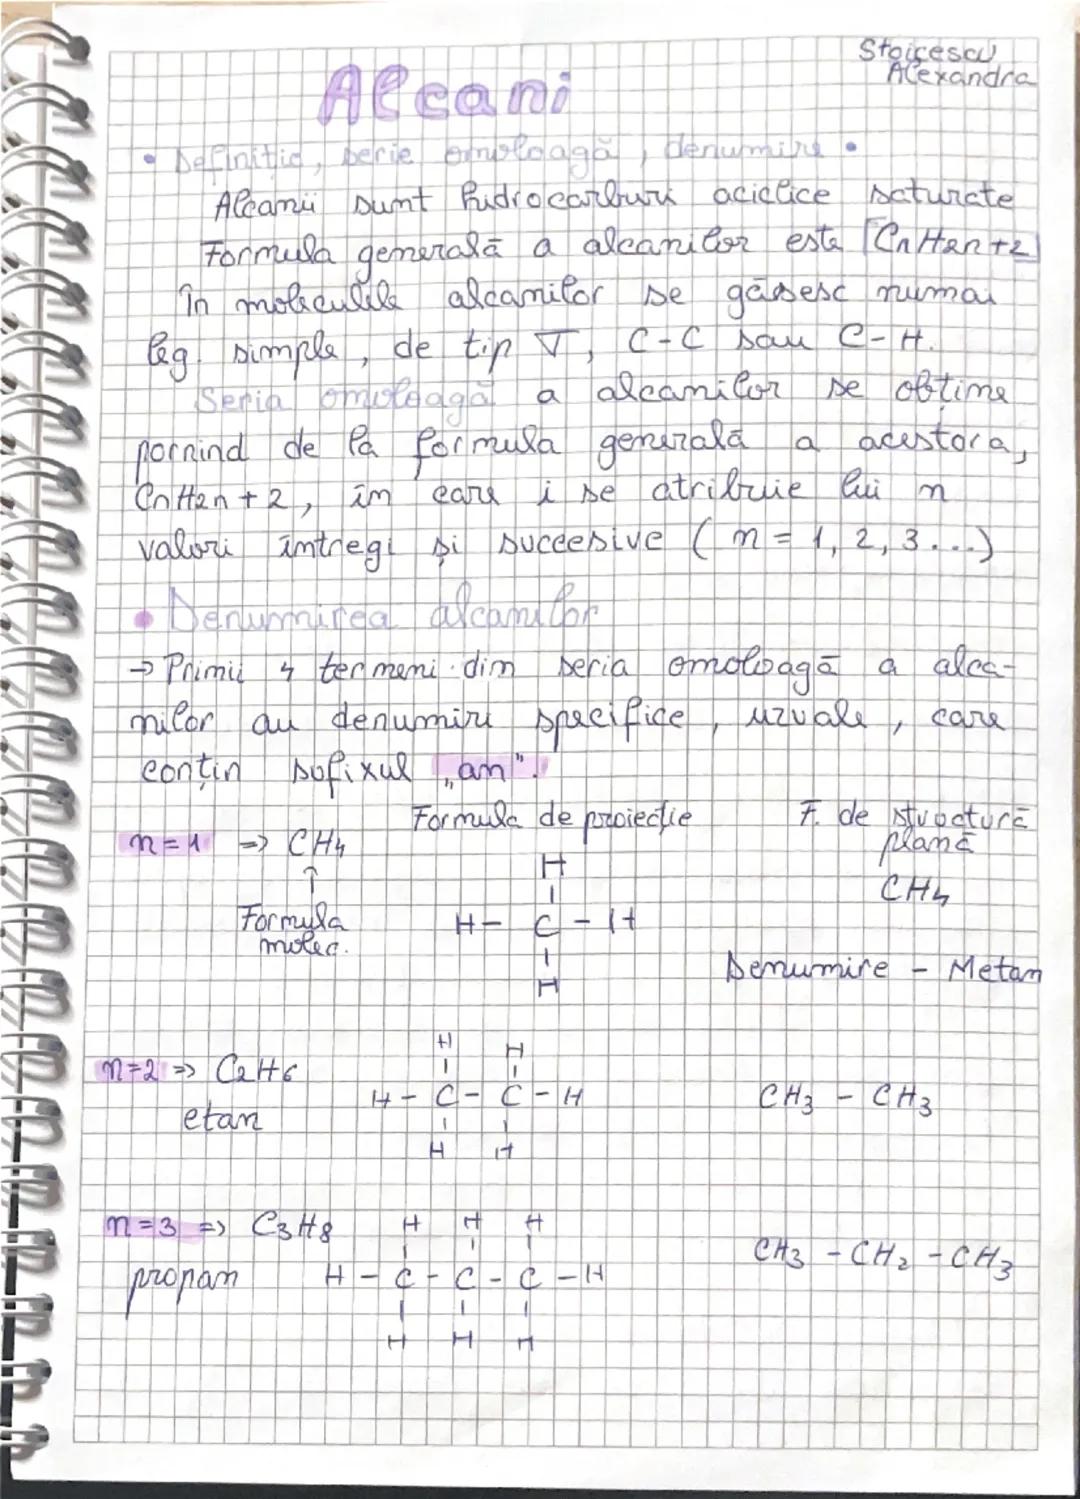 Stoicescu
Alexandra
Alcani
• Definiție, serie omoloagă, denumire •
Alcanii sunt hidrocarburi aciclice saturate
Formula generală a alcanilor este CnH2n+2
În moleculele alcanilor se găsesc numai
leg. simple, de tip σ, C-C sau C-H.
Seria omoloagă a alcanilor se obține
pornind de la formula generală a acestora,
CnH2n+2, în care i se atribuie lui n
valori întregi și succesive (n=1, 2, 3...)
• Denumirea alcanilor
→ Primii 4 termeni din seria omoloagă a alca-
nilor au denumiri specifice, uzuale, care
conțin sufixul „an".
Formula de proiecție F. de structură
plană
n=1 => CH4
↑
Formula
molec.
H
|
H - C - H
|
H
CH4
Denumire - Metan
n=2 => C2H6
etan
H H
| |
H - C - C - H
| |
H H
CH3 - CH3
n=3 => C3H8
propan
H H H
| | |
H - C - C - C - H
| | |
H H H
CH3 - CH2 - CH3